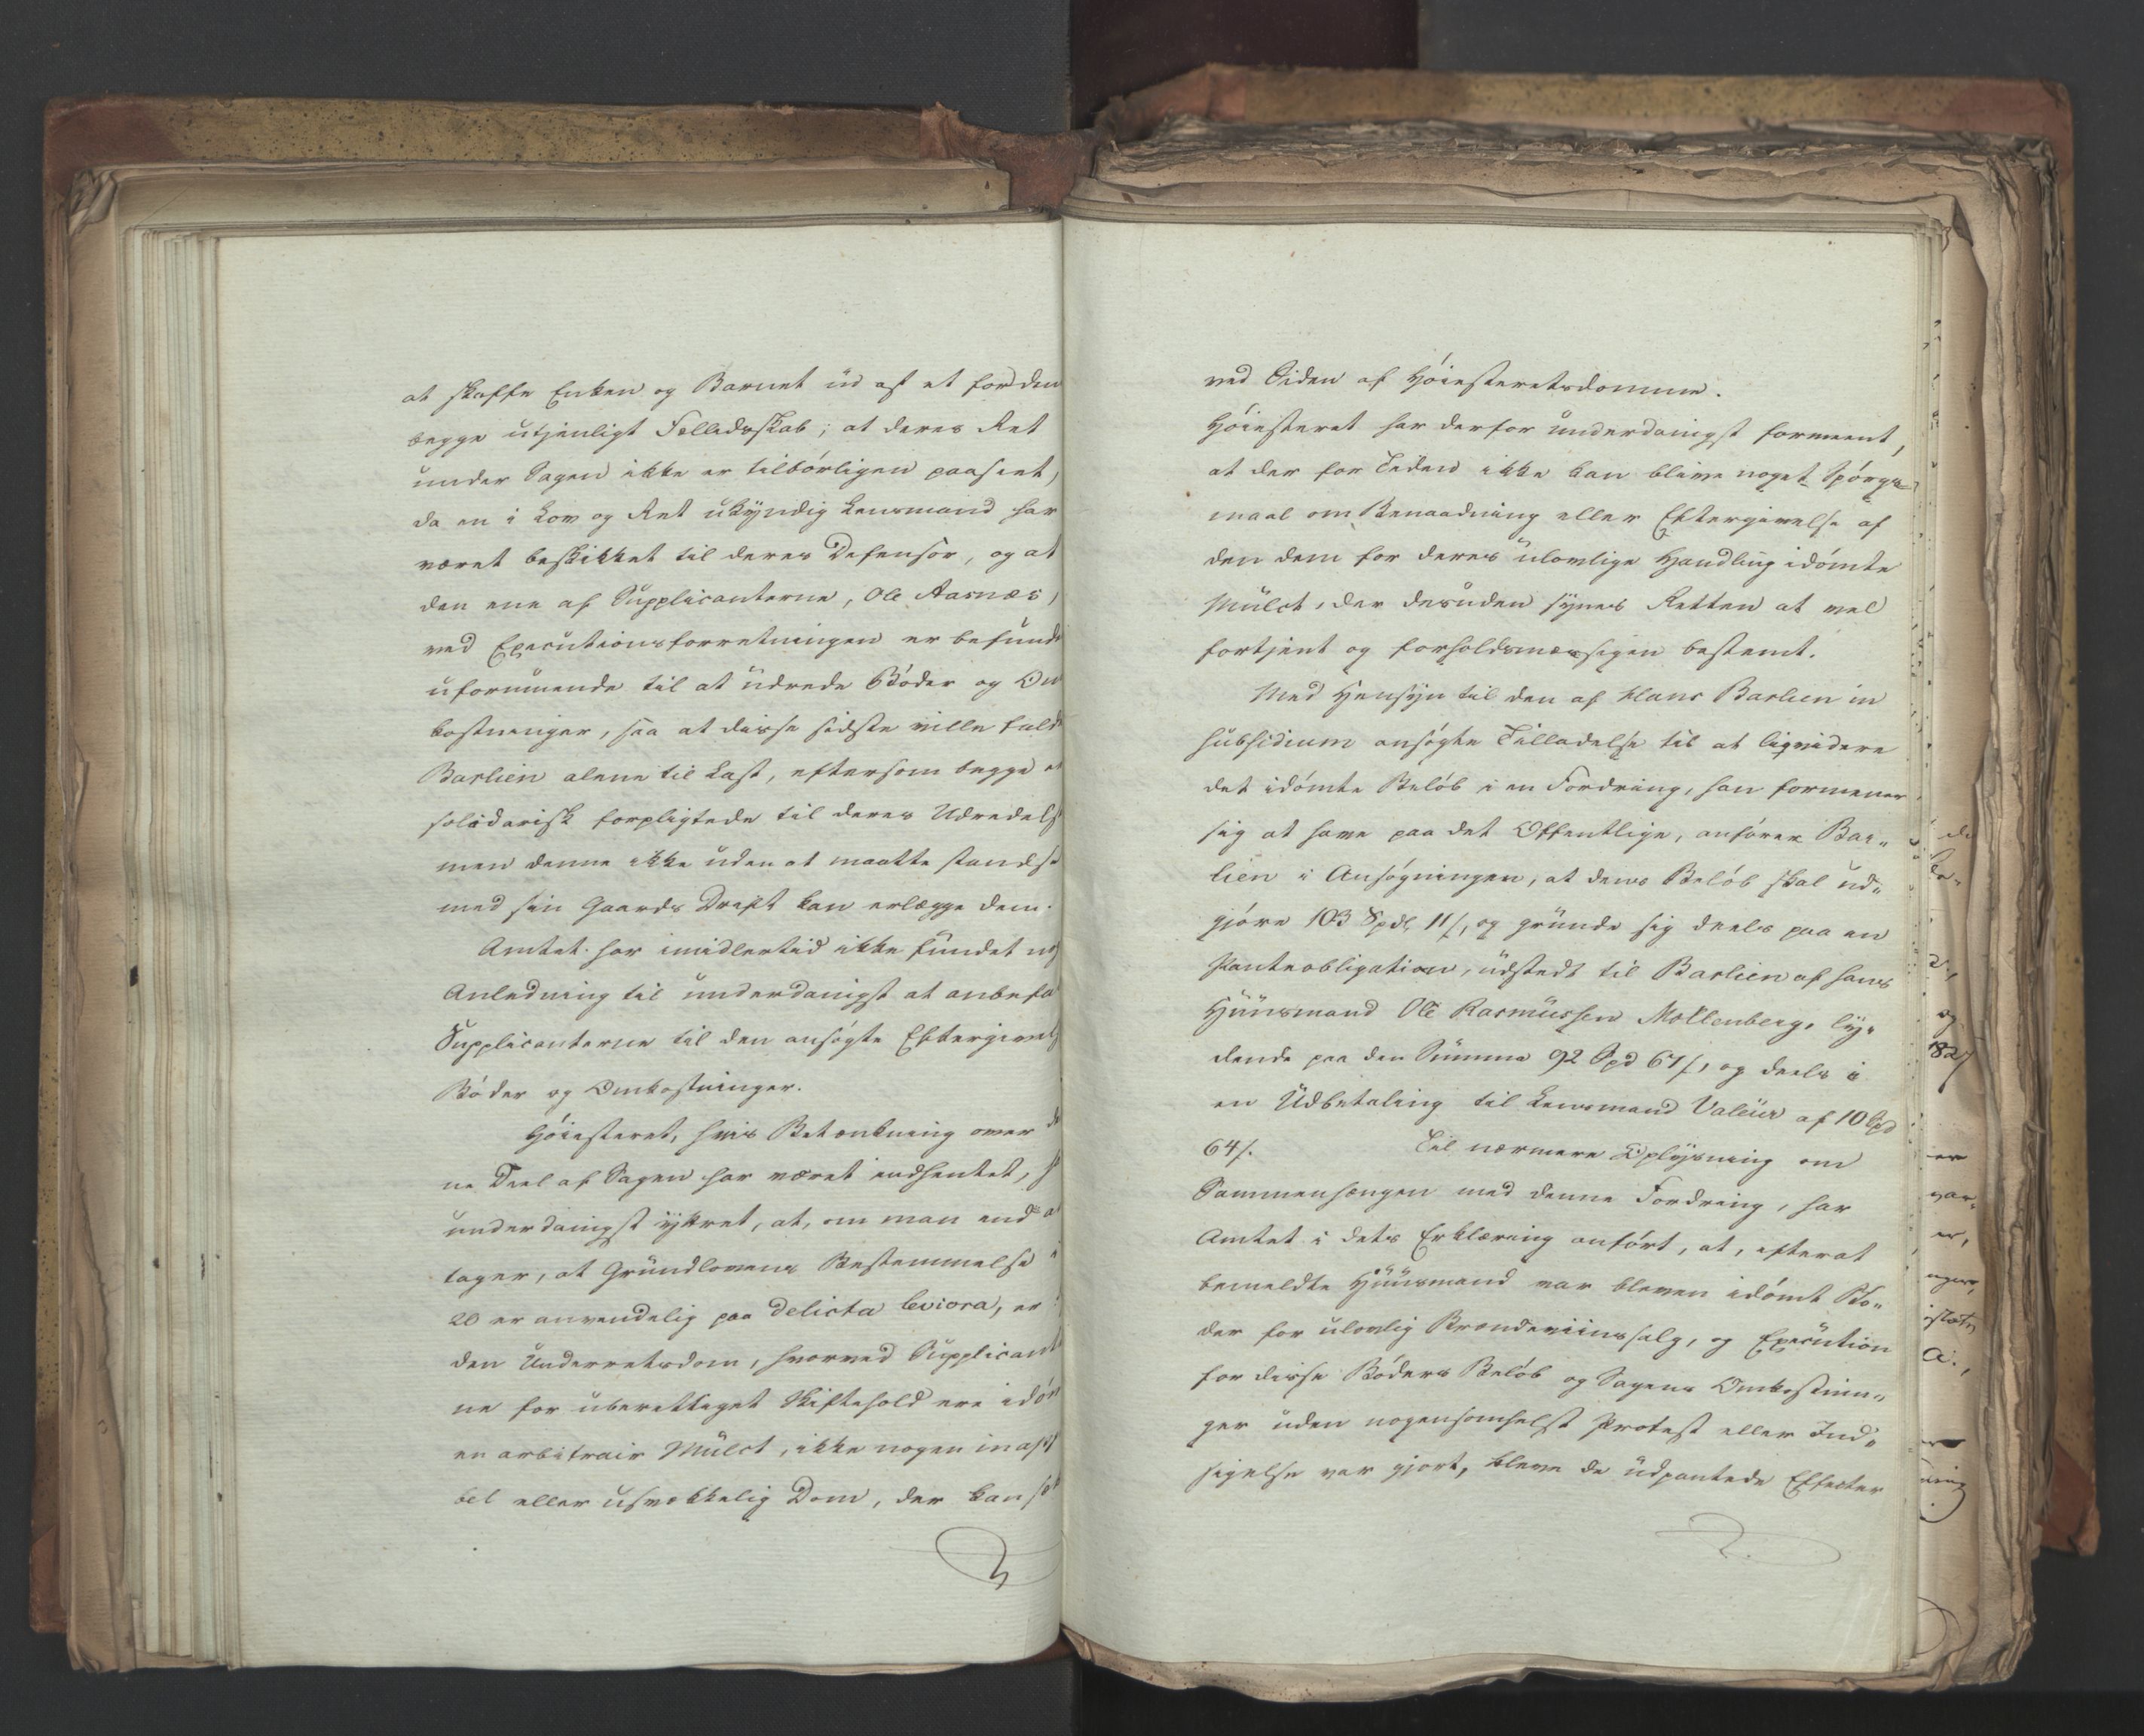 at skaffe Enken og Barnet ud af et for dem
begge utjenligt Fælledsskab; at deres Ret
under Sagen ikke er tilbørligen paaseet,
da en i Lov og Ret ukyndig Lensmand har
været beskikket til deres Defensor, og at
den ene af Supplicanterne, Ole Aarnæs,
ved Executionsforretningen er befunde
uformuende til at udrede Bøder og Om
kostninger, saa at disse sidste ville falde
Barlien alene til Last, eftersom begge e
solidarisk forpligtede til deres Udredels
men denne ikke uden at maatte standse
med sin Gaards Drift kan erlægge dem.
Amtet har imidlertid ikke fundet no
Anledning til underdanigst at anbefa
Supplicanterne til den ansøgte Eftergivels
Bøder og Omkostninger.
Høiesteret, hvis Betænkning over de
ne Deel af Sagen har været indhentet, h
underdanigst yttret, at, om man end a
tager, at Grundlovens Bestemmelse i
20 er anvendelig paa delicta leviora, er
den Underretsdom, hvorved Supplicant
ne for uberettiget Skiftehold ere idøm
en arbitrair Mulct, ikke nogen inap
bel eller usvækkelig Dom, der kan se
ved Siden af Høiesteretsdomme.
Høiesteret har derfor underdanigst forment,
at der for Tiden ikke kan blive noget Spørgs-
maal om Benaadning eller Eftergivelse af
den dem for deres ulovlige Handling idømte
Mulct, der desuden synes Retten at vel
fortjent og forholdsmæssigen bestemt.
Med Hensyn til den af Hans Barlien in
subsidium ansøgte Tilladelse til at liqvidere
det idømte Beløb i en Fordring, han formener
sig at have paa det Offentlige, anfører Bar„
lien i Ansøgningen, at dens Beløb skal ud„
gjøre 103 Spdl, 11 s, og grunde sig deels paa en
Panteobligation, udstedt til Barlien af hans
Huusmand Ole Rasmussen Møllenberg, ly„
dende paa den Summa 92 Spd 67 s, og deels i
en Udbetaling til Lensmand Valeur af 10 Spd
64 s. Til nærmere Oplysning om
Sammenhængen med denne Fordring, har
Amtet i dets Erklæring anført, at, efterat
bemeldte Huusmand var bleven idømt Bø„
der for ulovlig Brændeviinssalg, og Execution
for disse Bøders Beløb og Sagens Omkostnin„
ger uden nogensomhelst Protest eller Ind„
sigelse var gjort, bleve de udpantede Effecter